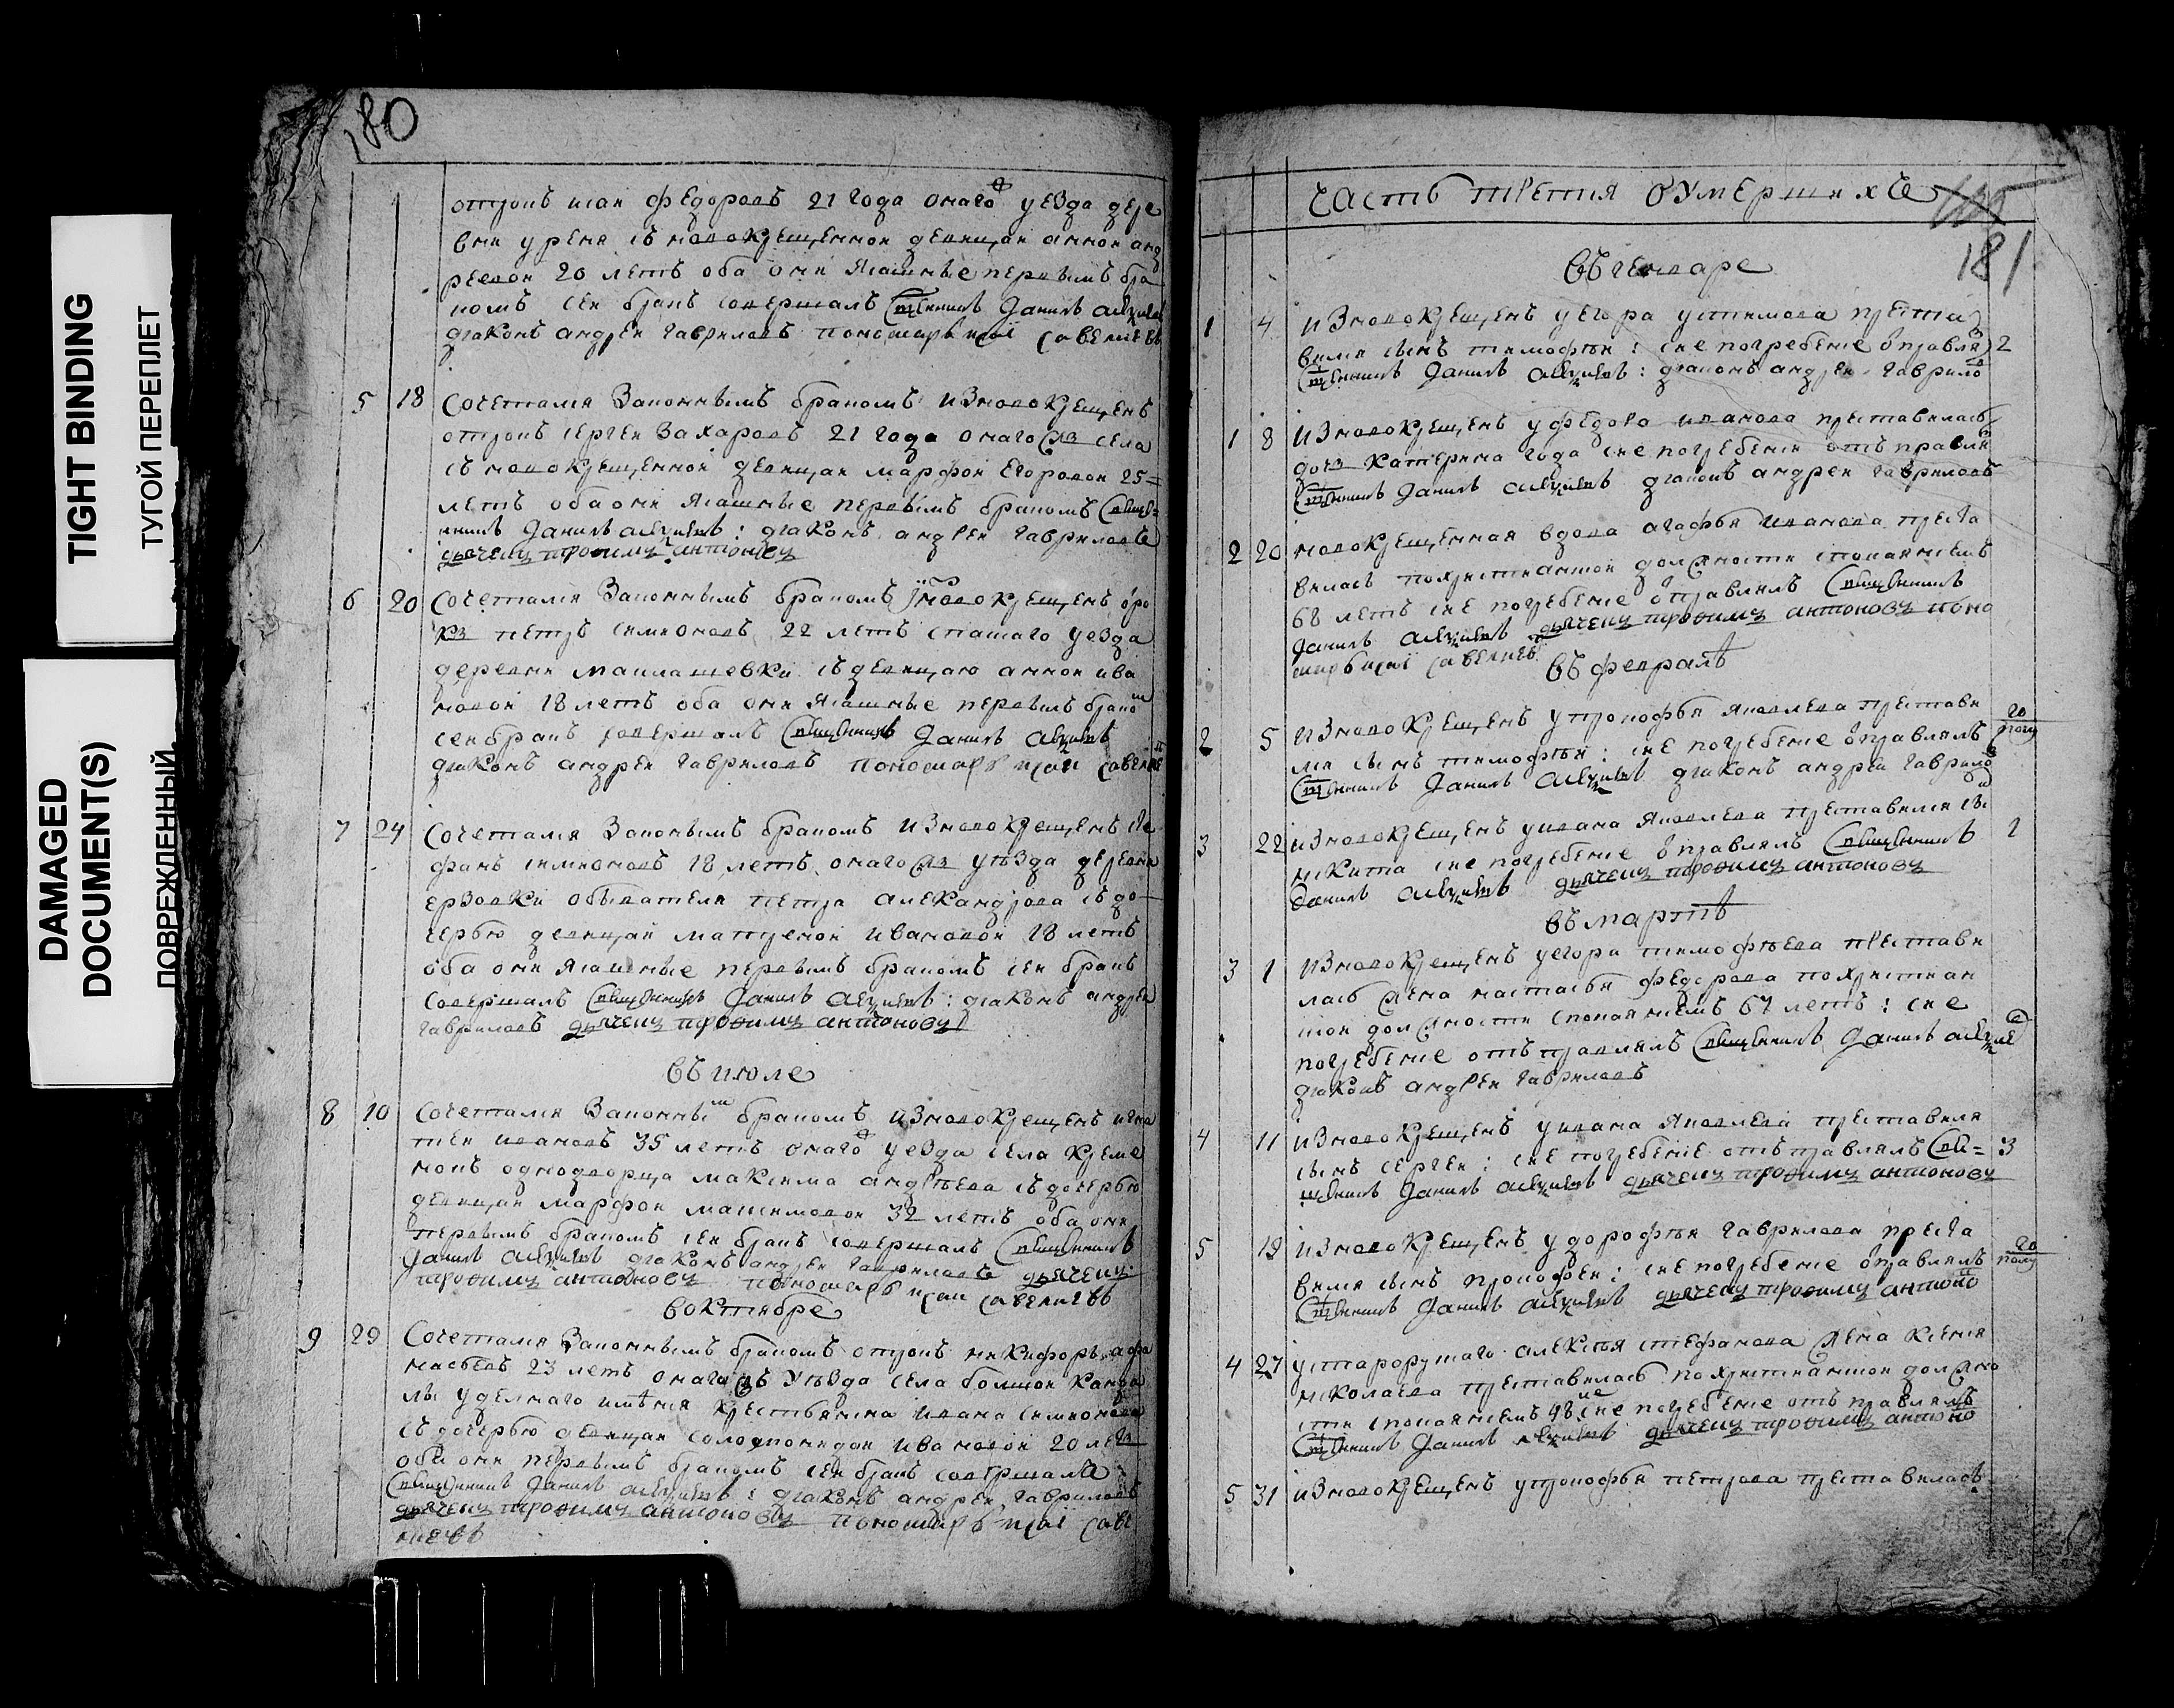 TIGHT BINDING
ТУГОЙ ПЕРЕПЛЕТ
DAMAGED
DOCUMENT(S)
ПОВРЕЖДЕННЫЙ
180
отрокъ Федоровъ 21 года онаго уезда дере
вни съ новокрещенной девицаи анной анд
реевой 20 летъ оба они ясашные первымъ бра
комъ сеи бракъ совершалъ священникъ Данилъ
диаконъ андреи Гавриловъ пономарь савельевъ
5 18 Сочетался Законнымъ бракомъ изновокрещенъ
отрокъ сергеи Захаровъ 21 года онаго села
съ новокрещенной девицаи марфои Егоровой 25=
летъ оба они ясашные первымъ бракомъ свяще=
нникъ Данилъ : диаконъ андреи Гавриловъ
дьячекъ трофимъ антоновъ
6 20 Сочетался Законнымъ бракомъ новокрещенъ отро
къ петръ симионовъ 22 летъ спаскаго уезда
деревни съ девицаю аннои ива
новой 18 летъ оба они ясашные первымъ бракомъ
сеи бракъ совершалъ священникъ Данилъ
диаконъ андреи Гавриловъ пономарь савелье
7 24 Сочетался Законнымъ бракомъ изновокрещенъ сте
фанъ симионовъ 18 летъ онаго уѣзда деревни
ерзовки обывателя петра александрова съ до
черью девицаи матреной ивановой 18 летъ
оба они ясашные первымъ бракомъ сеи бракъ
совершалъ священникъ Данилъ : диаконъ андреи
Гавриловъ дьячекъ трофимъ антоновъ
въ июле
8 10 Сочетался Законнымъ бракомъ изновокрещенъ игна
теи ивановъ 35 летъ онаго уезда села креме
нокъ однодворца максима андрѣева съ дочерью
девицаи марфои максимовой 32 летъ оба они
первымъ бракомъ сеи бракъ совершалъ священникъ
Данилъ диаконъ андреи Гавриловъ дьячекъ
трофимъ антоновъ пономарь савельевъ
въ октябре
9 29 Сочетался Законнымъ бракомъ отрокъ никифоръ афа
насьевъ 23 летъ онаго уѣзда села болшои канда
лы уделнаго имѣния крестьянина ивана симионова
съ дочерью девицаи ивановой 20 летъ
оба они первымъ бракомъ сеи бракъ совершалъ
священникъ Данилъ : диаконъ андреи Гавриловъ
дьячекъ трофимъ антоновъ пономарь саве
льевъ
часть третия о умершихъ
181
въ генваре
1 4 изновокрещенъ у егора устимова преста
вился сынъ тимофѣи : сие погребение отправлялъ 2
священникъ Данилъ : диаконъ андреи Гаврило
1 8 изновокрещенъ у федора иванова преставилась
дочь катерина года сие погребение отъправлялъ
священникъ Данилъ диаконъ андреи Гавриловъ
2 20 новокрещенная вдова агафья иванова преста
вилась похристианскои должности споканиемъ
68 летъ сие погребение отправлялъ священникъ
Данилъ дьячекъ трофимъ антоновъ поно
марь савельевъ
въ февралѣ
2 5 изновокрещенъ у прокофья яковлева престави
лся сынъ тимофѣи : сие погребение отправлялъ
священникъ Данилъ диаконъ андреи Гаврило
3 22 изновокрещенъ у ивана яковлева преставился сынъ
никита сие погребение отправлялъ священникъ 2
Данилъ дьячекъ трофимъ антоновъ
въ мартѣ
3 1 изновокрещенъ у егора тимофѣева престави
лась жена настасья федорова похристиан
скои должности споканиемъ 67 летъ : сие
погребение отъправлялъ священникъ Данилъ
диаконъ андреи Гавриловъ
4 11 изновокрещенъ у ивана яковлева преставился
сынъ сергеи : сие погребение отъправлялъ свя= 3
щенникъ Данилъ дьячекъ трофимъ антоновъ
5 19 изновокрещенъ у дорофѣи Гаврилова преста
вился сынъ прокофеи : сие погребение отправлялъ
священникъ Данилъ дьячекъ трофимъ антоно
4 27 у алексѣя стефанова жена ксения
николаева преставилась похристианскои должно
сти споканиемъ 48 сие погребение отъправлялъ
священникъ Данилъ дьячекъ трофимъ антоно
5 31 изновокрещенъ у прокофья петрова преставилась